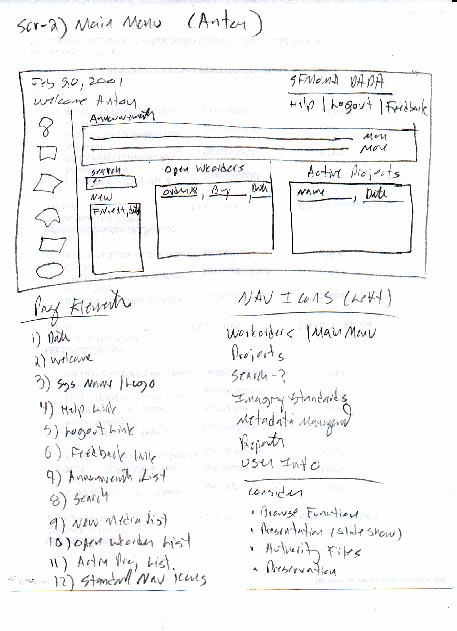 Scr-2) Main Menu (Anton)
Feb 20, 2001
SFMOMA DADA
Welcome Anton
Help | Logout | Feedback
Announcements
More
More
Search
Open Workorders
Active Projects
New
Order#, By, Date
Name, Date
Page Elements
NAV Icons (Left)
1) Date
2) Welcome
3) Sys Name/Logo
4) Help Link
5) Logout Link
6) Feedback Link
9) Announcements List
8) Search
9) New Media List
10) Open Workorders List
11) Active Proj. List.
12) Standard Nav Icons
Workorders | Main Menu
Projects
Search - ?
Imaging Standards
Metadata
Reports
User Info
Consider
• Browse Function
• Presentation (slide show)
• Authority Files
• Preservation